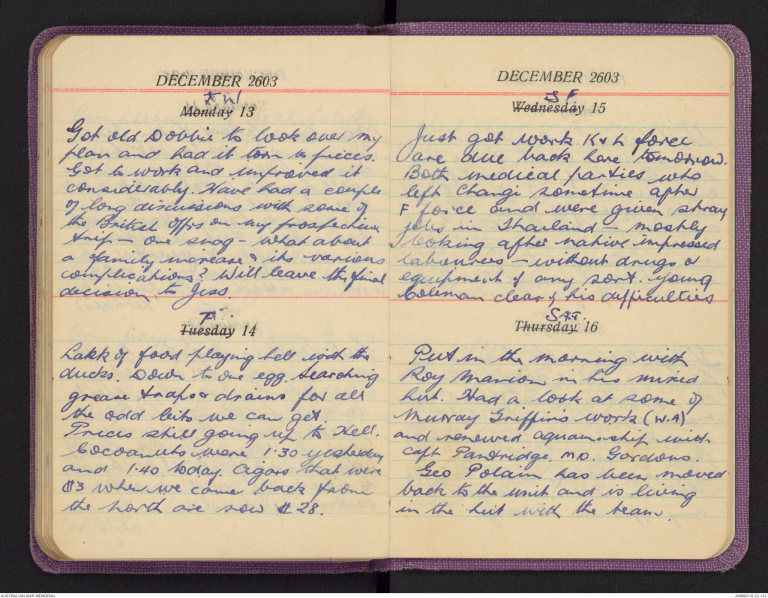 DECEMBER 2603
Th
Monday 13
Got old Dobbie to look over my
plan and had it torn to pieces.
Got to work and improved it
considerably. Have had a couple
of long discussions with some of
the British offrs on my prospective
trip — one snag — what about
a family increase & its various
complications? Will leave the final
decision to Jess.
F
Tuesday 14
Lakk of food playing hell with the
ducks. Down to one egg. Searching
grease traps & drains for all
the odd bits we can get
Prices still going up to Hell.
Cocoanuts were 1.30 yesterday
and 1.40 today. Cigars that were
$3 when we came back from
the north are now $28.
DECEMBER 2603
Wednesday 15
Just got work K & L force
are due back here tomorrow.
Both medical parties who
left Changi sometime after
F force and were given stray
jobs in Thailand — mostly
looking after native impressed
labourers — without drugs or
equipment of any sort. Young
Coleman clear of his difficulties
Sat.
Thursday 16
Put in the morning with
Roy Marion in his mixed
hut. Had a look at some of
Murray Griffin's work (W.A)
and renewed aquaintship with
Capt Pandridge, M.O. Gordons.
Geo Polain has been moved
back to the unit and is living
in the hut with the team.
AUSTRALIAN WAR MEMORIAL